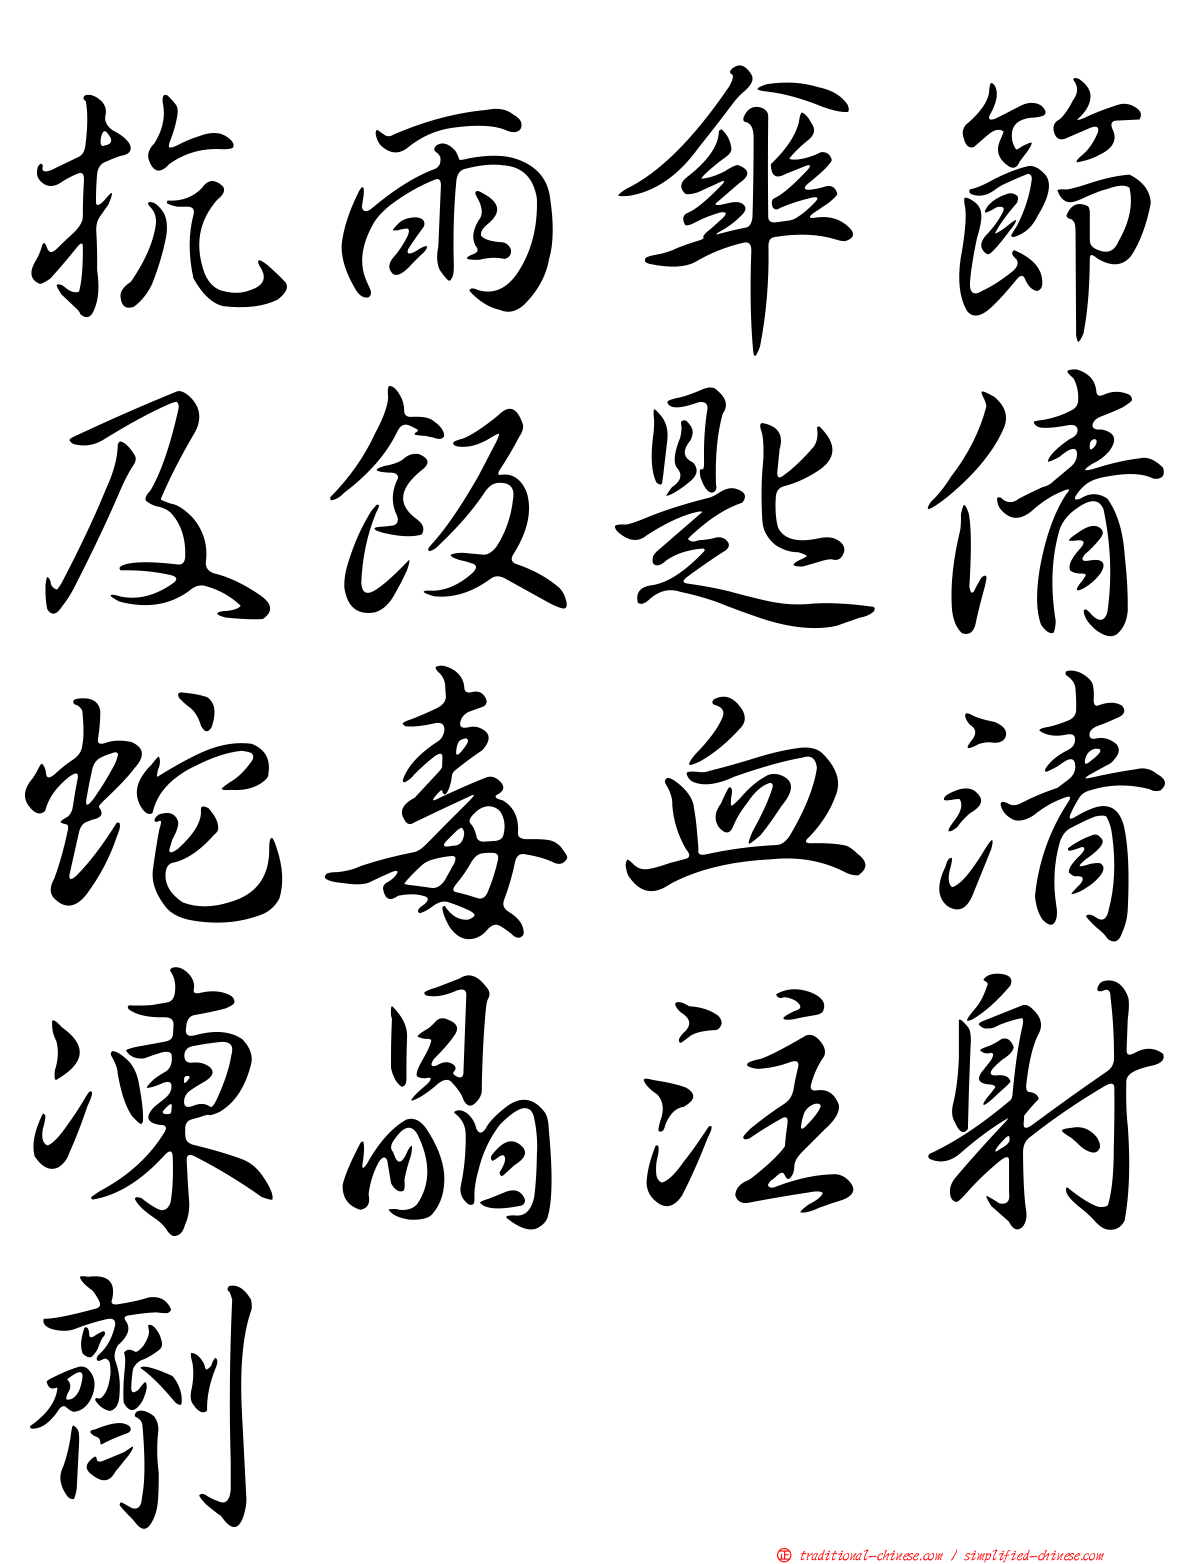 抗雨傘節
及飯匙倩
蛇毒血清
凍晶注射
劑
正 traditional-chinese.com / simplified-chinese.com